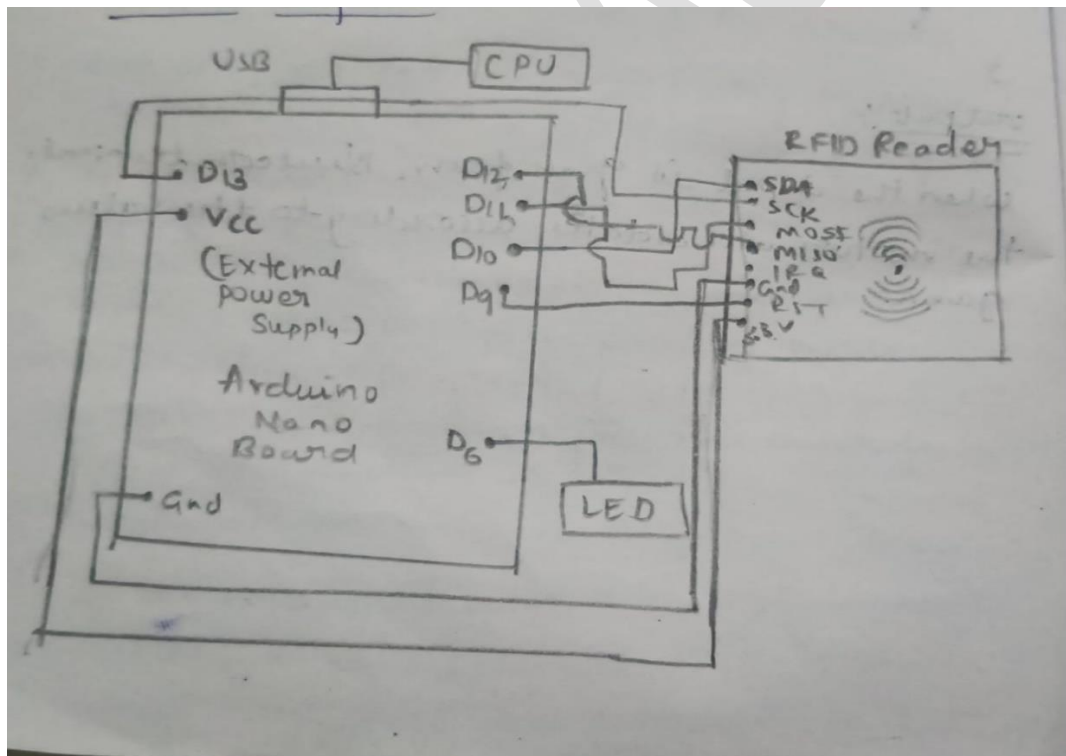 USB
CPU
RFID Reader
D13
Vcc
(External
power
Supply)
Arduino
Nano
Board
Gnd
D12
D11
D10
D9
D6
LED
SDA
SCK
MOSI
MISO
IRQ
Gnd
RST